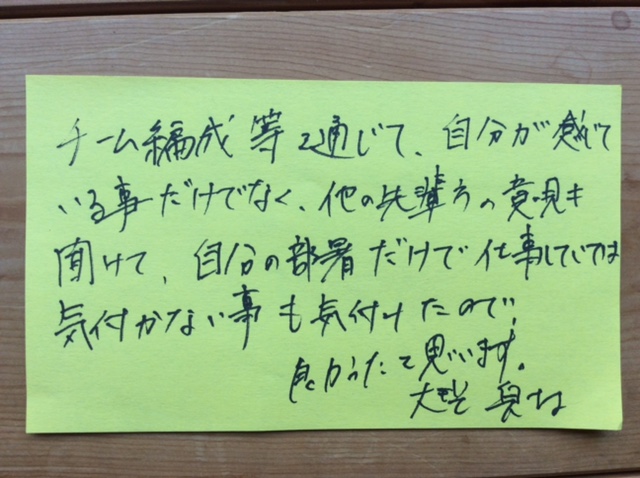 チーム編成等を通じて、自分が感じて
いる事だけでなく、他の先輩方の意見も
聞けて、自分の部署だけで仕事していては
気付かない事も気付けたので、
良かったと思います。